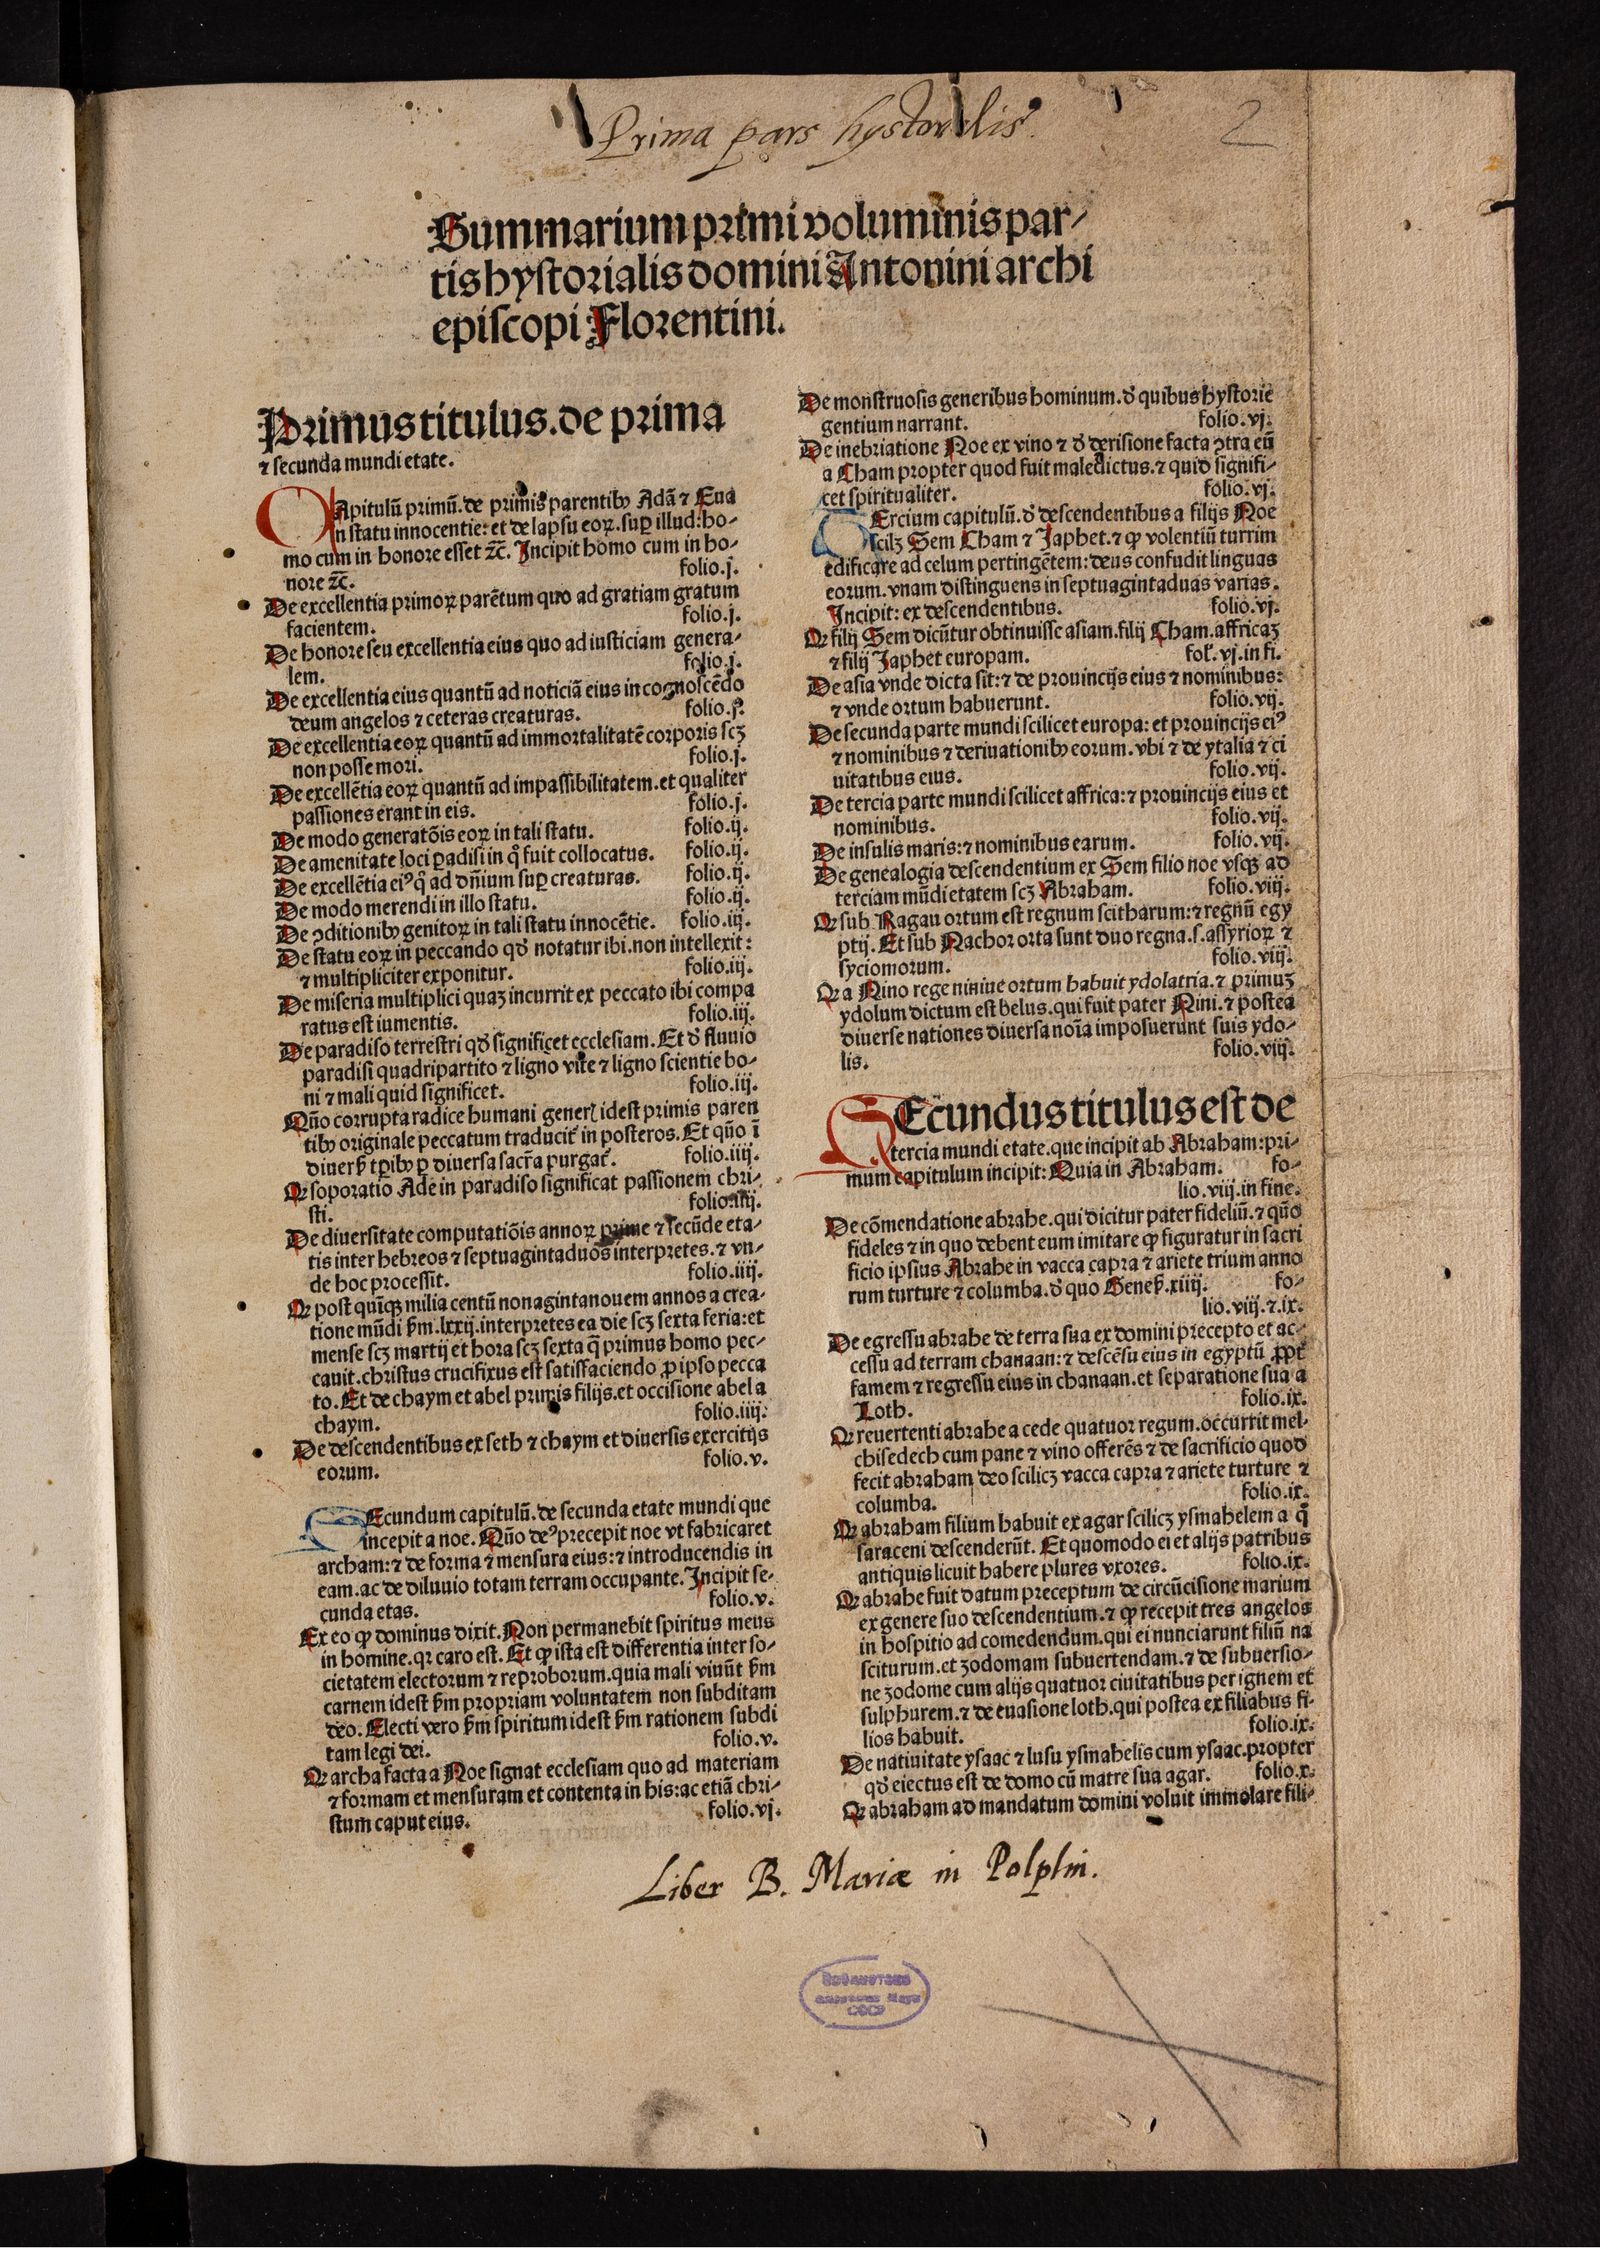 Prima pars hystorialis
2
Summarium primi voluminis par-
tis hystorialis domini Antonini archi
episcopi Florentini.
Primus titulus. de prima
⁊ secunda mundi etate.
CApitulū primū. de primis parentibꝰ Adā ⁊ Eua
in statu innocentie: et de lapsu eoꝝ. suꝑ illud: ho-
mo cum in honore esset ⁊c̄. Incipit homo cum in ho-
nore ⁊c̄. folio.j.
De excellentia primoꝝ parētum quo ad gratiam gratum
facientem. folio.j.
De honore seu excellentia eius quo ad iusticiam genera-
lem. folio.j.
De excellentia eius quantū ad noticiā eius in cognoscēdo
deum angelos ⁊ ceteras creaturas. folio.j.
De excellentia eoꝝ quantū ad immortalitatē corporis scꝫ
non posse mori. folio.j.
De excellētia eoꝝ quantū ad impassibilitatem. et qualiter
passiones erant in eis. folio.j.
De modo generatōis eoꝝ in tali statu. folio.ij.
De amenitate loci ꝑadisi in q̊ fuit collocatus. folio.ij.
De excellētia eiꝰ q̊ ad dn̄ium suꝑ creaturas. folio.ij.
De modo merendi in illo statu. folio.ij.
De ꝯditionibꝰ genitoꝝ in tali statu innocētie. folio.iij.
De statu eoꝝ in peccando qd̓ notatur ibi. non intellexit:
⁊ multipliciter exponitur. folio.iij.
De miseria multiplici quaꝫ incurrit ex peccato ibi compa
ratus est iumentis. folio.iij.
De paradiso terrestri qd̓ significet ecclesiam. Et d̓ fluuio
paradisi quadripartito ⁊ ligno vite ⁊ ligno scientie bo-
ni ⁊ mali quid significet. folio.iij.
Quō corrupta radice humani generꝭ idest primis paren
tibꝰ originale peccatum traducit̉ in posteros. Et quō ī
diuersꝭ tꝑibꝰ ꝑ diuersa sacr̄a purgat̉. folio.iiij.
Qꝛ soporatio Ade in paradiso significat passionem chri-
sti. folio.iiij.
De diuersitate computatiōis annoꝝ prime ⁊ secūde eta-
tis inter hebreos ⁊ septuagintaduos interpretes. ⁊ vn-
de hoc processit. folio.iiij.
Qꝛ post quīqꝫ milia centū nonagintanouem annos a crea-
tione mūdi ẜm. lxxij. interpretes ea die scꝫ sexta feria: et
mense scꝫ martij et hora scꝫ sexta q̄ primus homo pec-
cauit. christus crucifixus est satisfaciendo ꝓ ipso pecca
to. Et de chaym et abel primis filijs. et occisione abel a
chaym. folio.iiij.
De descendentibus ex seth ⁊ chaym et diuersis exercitijs
eorum. folio.v.
SEcundum capitulū. de secunda etate mundi que
incepit a noe. Quō deꝰ precepit noe vt fabricaret
archam: ⁊ de forma ⁊ mensura eius: ⁊ introducendis in
eam. ac de diluuio totam terram occupante. Incipit se-
cunda etas. folio.v.
Ex eo ꝙ dominus dixit. Non permanebit spiritus meus
in homine. qꝛ caro est. Et ꝙ ista est differentia inter so-
cietatem electorum ⁊ reproborum. quia mali viuūt ẜm
carnem idest ẜm propriam voluntatem non subditam
deo. Electi vero ẜm spiritum idest ẜm rationem subdi
tam legi dei. folio.v.
Qꝛ archa facta a Noe signat ecclesiam quo ad materiam
⁊ formam et mensuram et contenta in his: ac etiā chri-
stum caput eius. folio.vj.
De monstruosis generibus hominum. d̓ quibus hystorie
gentium narrant. folio.vj.
De inebriatione Noe ex vino ⁊ d̓ derisione facta ꝯtra eū
a Cham propter quod fuit maledictus. ⁊ quid signifi-
cet spiritualiter. folio.vj.
TErcium capitulū. d̓ descendentibus a filijs Noe
scilꝫ Sem Cham ⁊ Japhet. ⁊ ꝙ volentiū turrim
edificare ad celum pertingētem: deus confudit linguas
eorum. vnam distinguens in septuagintaduas varias.
Incipit: ex descendentibus. folio.vj.
Qꝛ filij Sem dicūtur obtinuisse asiam. filij Cham. affricaꝫ
⁊ filij Japhet europam. fol̓. vj. in fi.
De asia vnde dicta sit: ⁊ de prouincijs eius ⁊ nominibus:
⁊ vnde ortum habuerunt. folio.vij.
De secunda parte mundi scilicet europa: et prouincijs eiꝰ
⁊ nominibus ⁊ deriuationibꝰ eorum. vbi ⁊ de ytalia ⁊ ci
uitatibus eius. folio.vij.
De tercia parte mundi scilicet affrica: ⁊ prouincijs eius et
nominibus. folio.vij.
De insulis maris: ⁊ nominibus earum. folio.vij.
De genealogia descendentium ex Sem filio noe vsqꝫ ad
terciam mūdi etatem scꝫ Abraham. folio.viij.
Qꝛ sub Ragau ortum est regnum scitharum: ⁊ regnū egy
ptij. Et sub Nachor orta sunt duo regna. s. assyrioꝝ ⁊
syciomorum. folio.viij.
Qꝛ a Nino rege niniue ortum habuit ydolatria. ⁊ primuꝫ
ydolum dictum est belus. qui fuit pater Nini. ⁊ postea
diuerse nationes diuersa noīa imposuerunt suis ydo-
lis. folio.viij.
SEcundus titulus est de
tercia mundi etate. que incipit ab Abraham: pri-
mum capitulum incipit: Quia in Abraham. fo-
lio. viij. in fine.
De cōmendatione abrahe. qui dicitur pater fideliū. ⁊ quō
fideles ⁊ in quo debent eum imitare ꝙ figuratur in sacri
ficio ipsius Abrahe in vacca capra ⁊ ariete trium anno
rum turture ⁊ columba. d̓ quo Geneẜ. xiiij. fo-
lio. viij. ⁊. ix.
De egressu abrahe de terra sua ex domini precepto et ac-
cessu ad terram chanaan: ⁊ descēsu eius in egyptū ꝓpt̉
famem ⁊ regressu eius in chanaan. et separatione sua a
Loth. folio.ix.
Qꝛ reuertenti abrahe a cede quatuor regum. occurrit mel-
chisedech cum pane ⁊ vino offerēs ⁊ de sacrificio quod
fecit abraham deo scilicꝫ vacca capra ⁊ ariete turture ⁊
columba. folio.ix.
Qꝛ abraham filium habuit ex agar scilicꝫ ysmahelem a q̊
saraceni descenderūt. Et quomodo ei et alijs patribus
antiquis licuit habere plures vxores. folio.ix.
Qꝛ abrahe fuit datum preceptum de circūcisione marium
ex genere suo descendentium. ⁊ ꝙ recepit tres angelos
in hospitio ad comedendum. qui ei nunciarunt filiū na
sciturum. et ꝫodomam subuertendam. ⁊ de subuersio-
ne ꝫodome cum alijs quatuor ciuitatibus per ignem et
sulphurem. ⁊ de euasione loth. qui postea ex filiabus fi-
lios habuit. folio.ix.
De natiuitate ysaac ⁊ lusu ysmahelis cum ysaac. propter
qd̓ eiectus est de domo cū matre sua agar. folio.x.
Qꝛ abraham ad mandatum domini voluit immolare fili-
Liber B. Mariæ in Polplin.
СССР